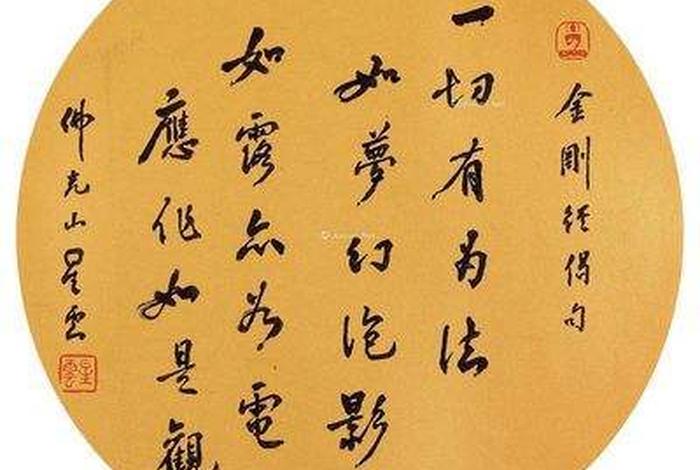 金剛經偈句
一切有為法
如夢幻泡影
如露亦如電
應作如是觀
佛光山星雲
星雲